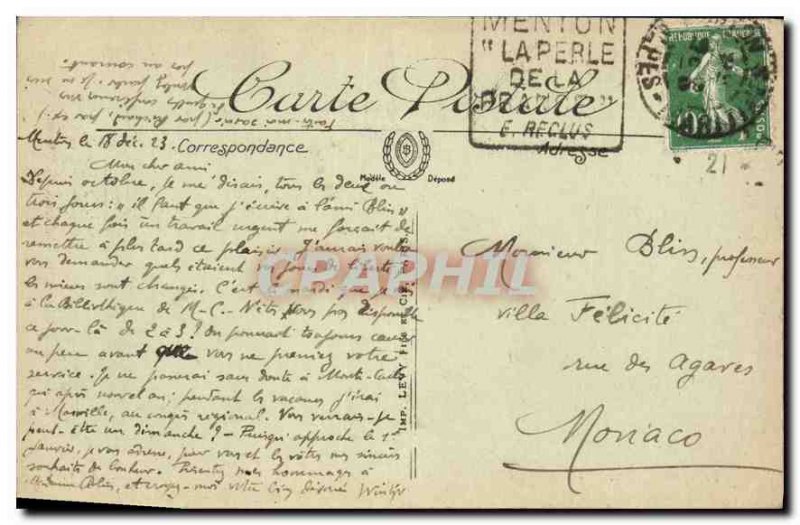 MENTON
"LA PERLE
DE LA
FRANCE"
E. RECLUS
Carte Postale
Correspondance
Adresse
Modèle Déposé
Menton, le 18 déc. 23
Mon cher ami
Depuis octobre, je me disais, tous les deux ou
trois jours : "il faut que j'écrive à l'ami Bliss"
et chaque fois un travail urgent me forçait de
remettre à plus tard ce plaisir. J'aurais voulu
vous demander quels étaient vos jours de liberté :
les miens sont changés. C'est
à la Bibliothèque de M.-C. N'êtes-vous pas disponible
ce jour-là de 2 à 3? On pourrait toujours causer
un peu avant que vous ne preniez votre
service. Je ne passerai sans doute à Monte-Carlo
qu'après nouvel an ; pendant les vacances j'irai
à Marseille, au congrès régional. Vous verrais-je
peut-être un dimanche? - Puisqu'approche le 1er
Janvier, je vous adresse, pour vous et les vôtres mes sincères
souhaits de bonheur. Présentez mes hommages à
Madame Bliss, et croyez-moi votre
IMP. LEVY FILS ET CIE PARIS
CPAPHIL
Monsieur Bliss, professeur
villa Félicité
rue des Agaves
Monaco